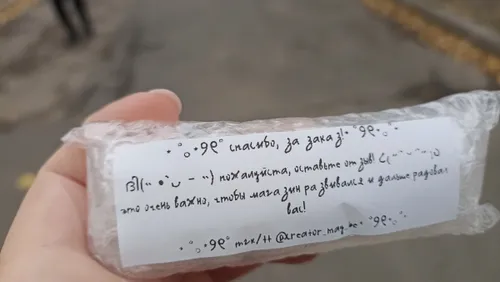 ⋆ ˚｡⋆୨୧˚ спасибо, за заказ! ⋆ ˚୨୧⋆｡˚ ⋆
пожалуйста, оставьте отзыв!
это очень важно, чтобы магазин развивался и дальше радовал
вас!
⋆ ˚｡⋆୨୧˚ тгк/тт @creator_mag. ⋆ ˚୨୧⋆｡˚ ⋆